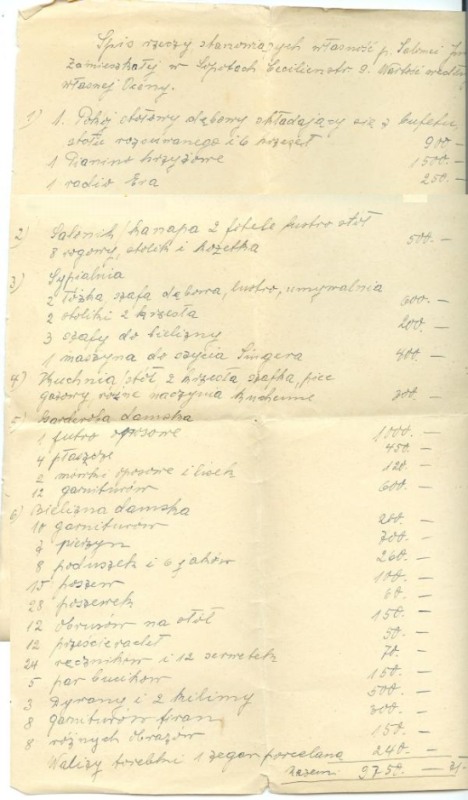 Spis rzeczy stanowiących własność p. Salomei
Zamieszkałej w Sopotach Cecilienstr 9. Wartość według
własnej Oceny.
1) 1. Pokój stołowy dębowy składający się z bufetu,
stołu rozsuwanego i 6 krzeseł 900 —
1 Pianino krzyżowe 1500. —
1 radio Era 250. —
2) Salonik / kanapa 2 fotele lustro stół
8 rogowy, stolik i kozetka 500. —
3) Sypialnia
2 łóżka szafa dębowa, lustro, umywalnia 600. —
2 stoliki 2 krzesła
3 szafy do bielizny 200. —
1 maszyna do szycia Singera 400. —
4) Kuchnia / stół, 2 krzesła szafka, piec
gazowy różne naczynia kuchenne 300. —
5) Garderoba damska
1 futro 1000. —
4 płaszcze 450. —
2 i 120. —
12 garniturów 600. —
6) Bielizna damska
10 garniturów 200. —
7 pierzyn 700. —
8 poduszek i 6 jaśków 260. —
15 poszew 100. —
28 poszewek 60. —
12 obrusów na stół 150. —
12 prześcieradeł 50. —
24 ręczników i 12 serwetek 70. —
5 par bucików 150. —
3 Dywany i 2 kilimy 500. —
8 garniturów firan 300. —
8 różnych obrazów 150. —
Walizy torebki 1 zegar porcelana 240. —
Razem: 9750. — zł.